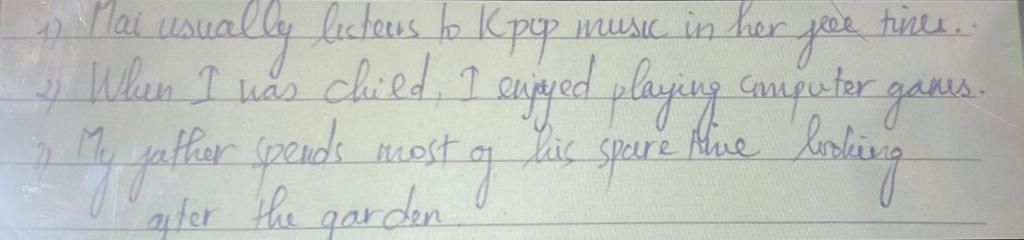 1) Mai usually listens to Kpop music in her free times.
2) When I was child, I enjoyed playing computer games.
3) My father spends most of his spare time looking
after the garden